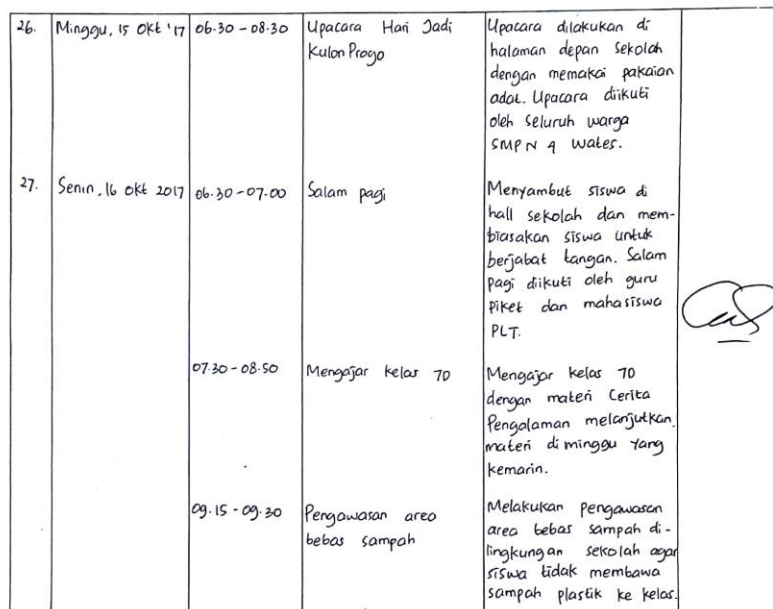 26. Minggu, 15 Okt '17 06.30 - 08.30 Upacara Hari Jadi
Kulon Progo
Upacara dilakukan di
halaman depan sekolah
dengan memakai pakaian
adat. Upacara diikuti
oleh seluruh warga
SMP N 4 Wates.
27. Senin, 16 Okt 2017 06.30 - 07.00 Salam pagi
Menyambut siswa di
hall sekolah dan mem-
biasakan siswa untuk
berjabat tangan. Salam
pagi diikuti oleh guru
piket dan mahasiswa
PLT.
07.30 - 08.50 Mengajar kelas 7D
Mengajar kelas 7D
dengan materi Cerita
Pengalaman melanjutkan
materi di minggu yang
kemarin.
09.15 - 09.30 Pengawasan area
bebas sampah
Melakukan pengawasan
area bebas sampah di-
lingkungan sekolah agar
siswa tidak membawa
sampah plastik ke kelas.